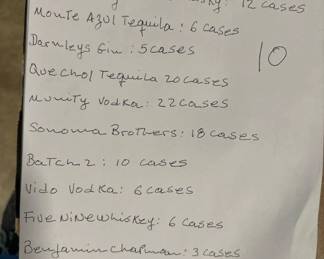 12 cases
Monte Azul Tequila : 6 cases
Darnleys Gin : 5 cases
10
Quechol Tequila 20 cases
Vodka : 22 cases
Sonoma Brothers : 18 cases
Batch 2 : 10 cases
Vido Vodka : 6 cases
Five Nine Whiskey : 6 cases
Benjamin Chapman : 3 cases